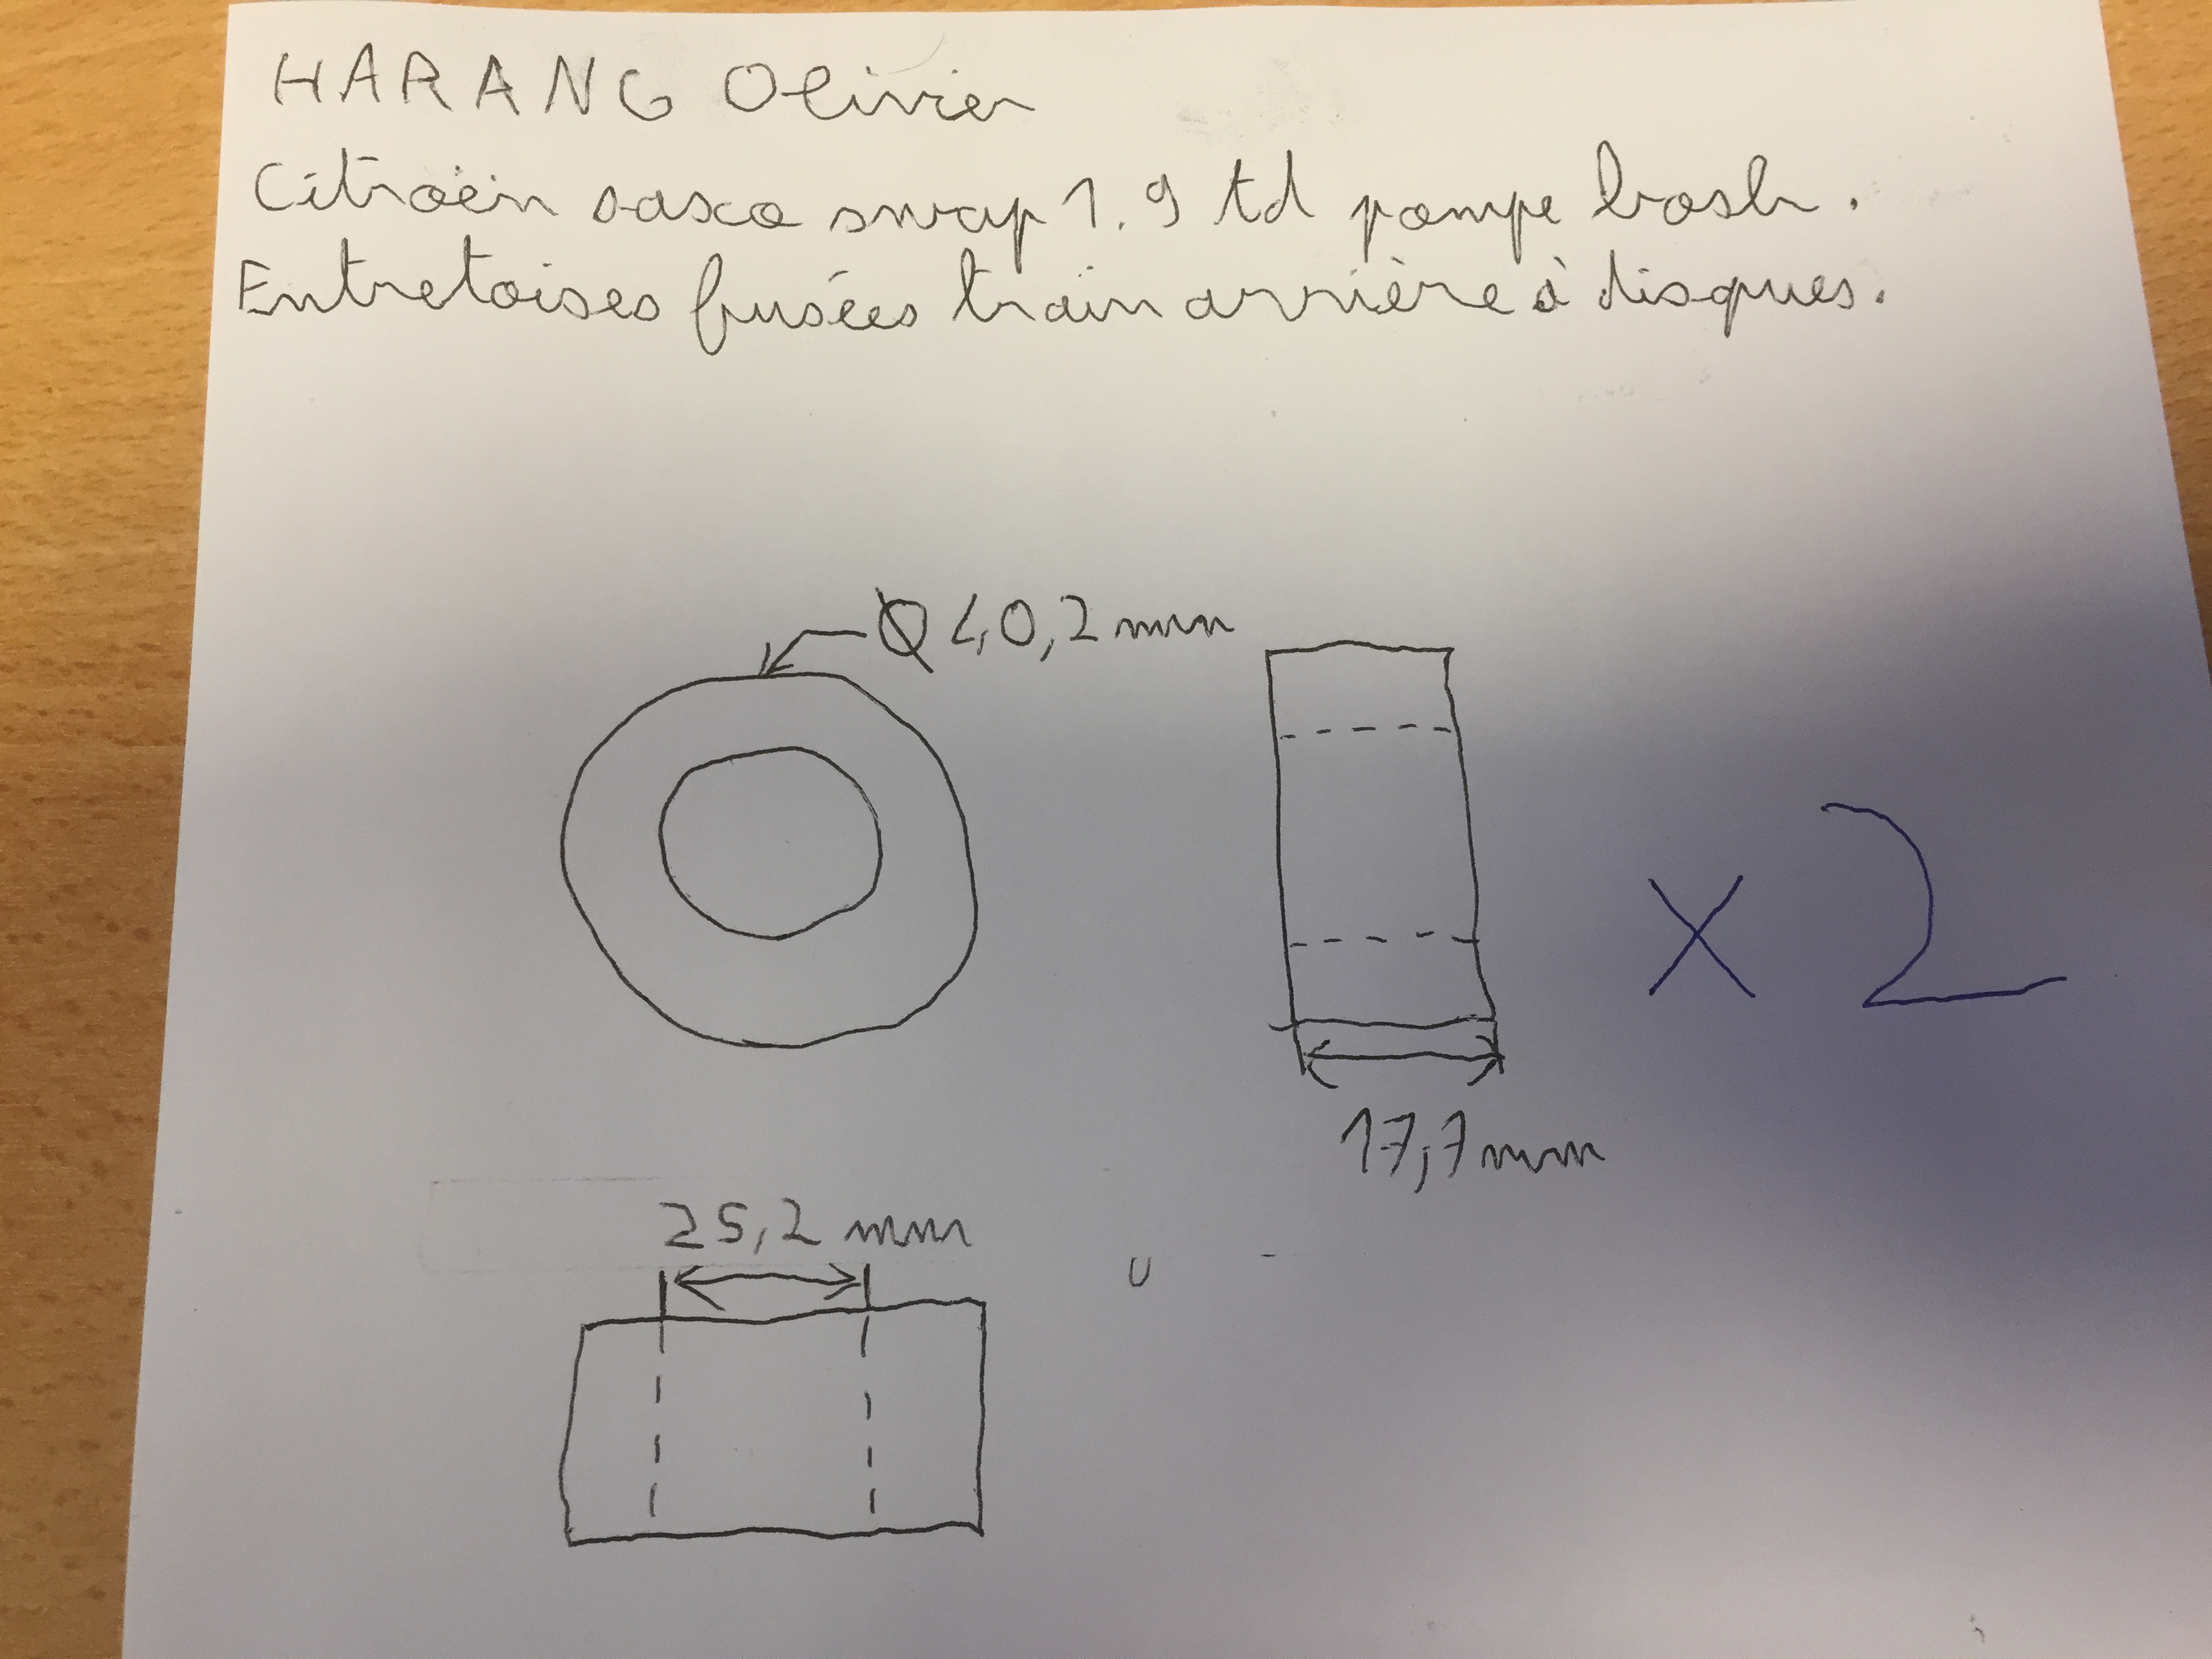 HARANG Olivier
Citroën saxo swap 1.9 td pompe bosh.
Entretoises fusées train arrière à disques.
Ø 40,2 mm
x 2
17,7 mm
25,2 mm